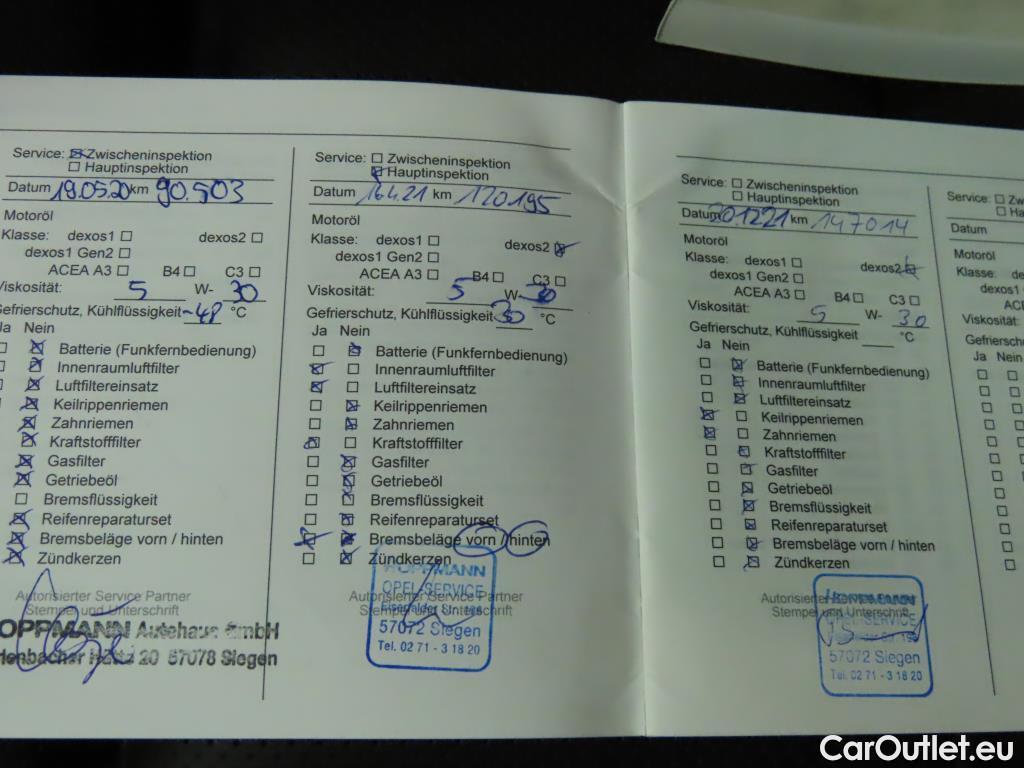 Service: Zwischeninspektion
Hauptinspektion
Datum 19.05.20 km 90.503
Motoröl
Klasse: dexos1 dexos2
dexos1 Gen2
ACEA A3 B4 C3
Viskosität: 5 W- 30
Gefrierschutz, Kühlflüssigkeit °C
Ja Nein
Batterie (Funkfernbedienung)
Innenraumluftfilter
Luftfiltereinsatz
Keilrippenriemen
Zahnriemen
Kraftstofffilter
Gasfilter
Getriebeöl
Bremsflüssigkeit
Reifenreparaturset
Bremsbeläge vorn / hinten
Zündkerzen
Autorisierter Service Partner
Stempel und Unterschrift
HOPPMANN Autohaus GmbH
20 57078 Siegen
Service: Zwischeninspektion
Hauptinspektion
Datum 16.4.21 km 120195
Motoröl
Klasse: dexos1 dexos2
dexos1 Gen2
ACEA A3 B4 C3
Viskosität: 5 W- 30
Gefrierschutz, Kühlflüssigkeit 30 °C
Ja Nein
Batterie (Funkfernbedienung)
Innenraumluftfilter
Luftfiltereinsatz
Keilrippenriemen
Zahnriemen
Kraftstofffilter
Gasfilter
Getriebeöl
Bremsflüssigkeit
Reifenreparaturset
Bremsbeläge vorn / hinten
Zündkerzen
Autorisierter Service Partner
Stempel und Unterschrift
HOPPMANN
OPEL-SERVICE
57072 Siegen
Tel. 02 71 - 3 18 20
Service: Zwischeninspektion
Hauptinspektion
Datum 20.12.21 km 147014
Motoröl
Klasse: dexos1 dexos2
dexos1 Gen2
ACEA A3 B4 C3
Viskosität: 5 W- 30
Gefrierschutz, Kühlflüssigkeit °C
Ja Nein
Batterie (Funkfernbedienung)
Innenraumluftfilter
Luftfiltereinsatz
Keilrippenriemen
Zahnriemen
Kraftstofffilter
Gasfilter
Getriebeöl
Bremsflüssigkeit
Reifenreparaturset
Bremsbeläge vorn / hinten
Zündkerzen
Autorisierter
Stempel und Unterschrift
HOPPMANN
OPEL-SERVICE
57072 Siegen
Tel. 02 71 - 3 18 20
Service: Zw
Ha
Datum
Motoröl
Klasse: dexo
dexos1
ACEA
Viskosität:
Gefriersch
Ja Nein
CarOutlet.eu